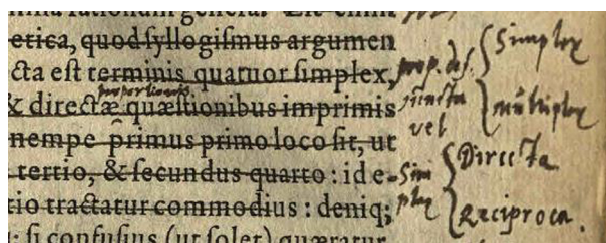 etica, quod ſyllogiſmus argumen
cta eſt terminis quatuor ſimplex,
& directæ quæſtionibus imprimis
nempe primus primo loco ſit, ut
tertio, & ſecundus quarto : id e-
tio tractatur commodius : deniq;
: ſi confuſius (ut ſolet) quæratur
Simplex
multiplex
vel
Directa
Sim
plex
Reciproca.